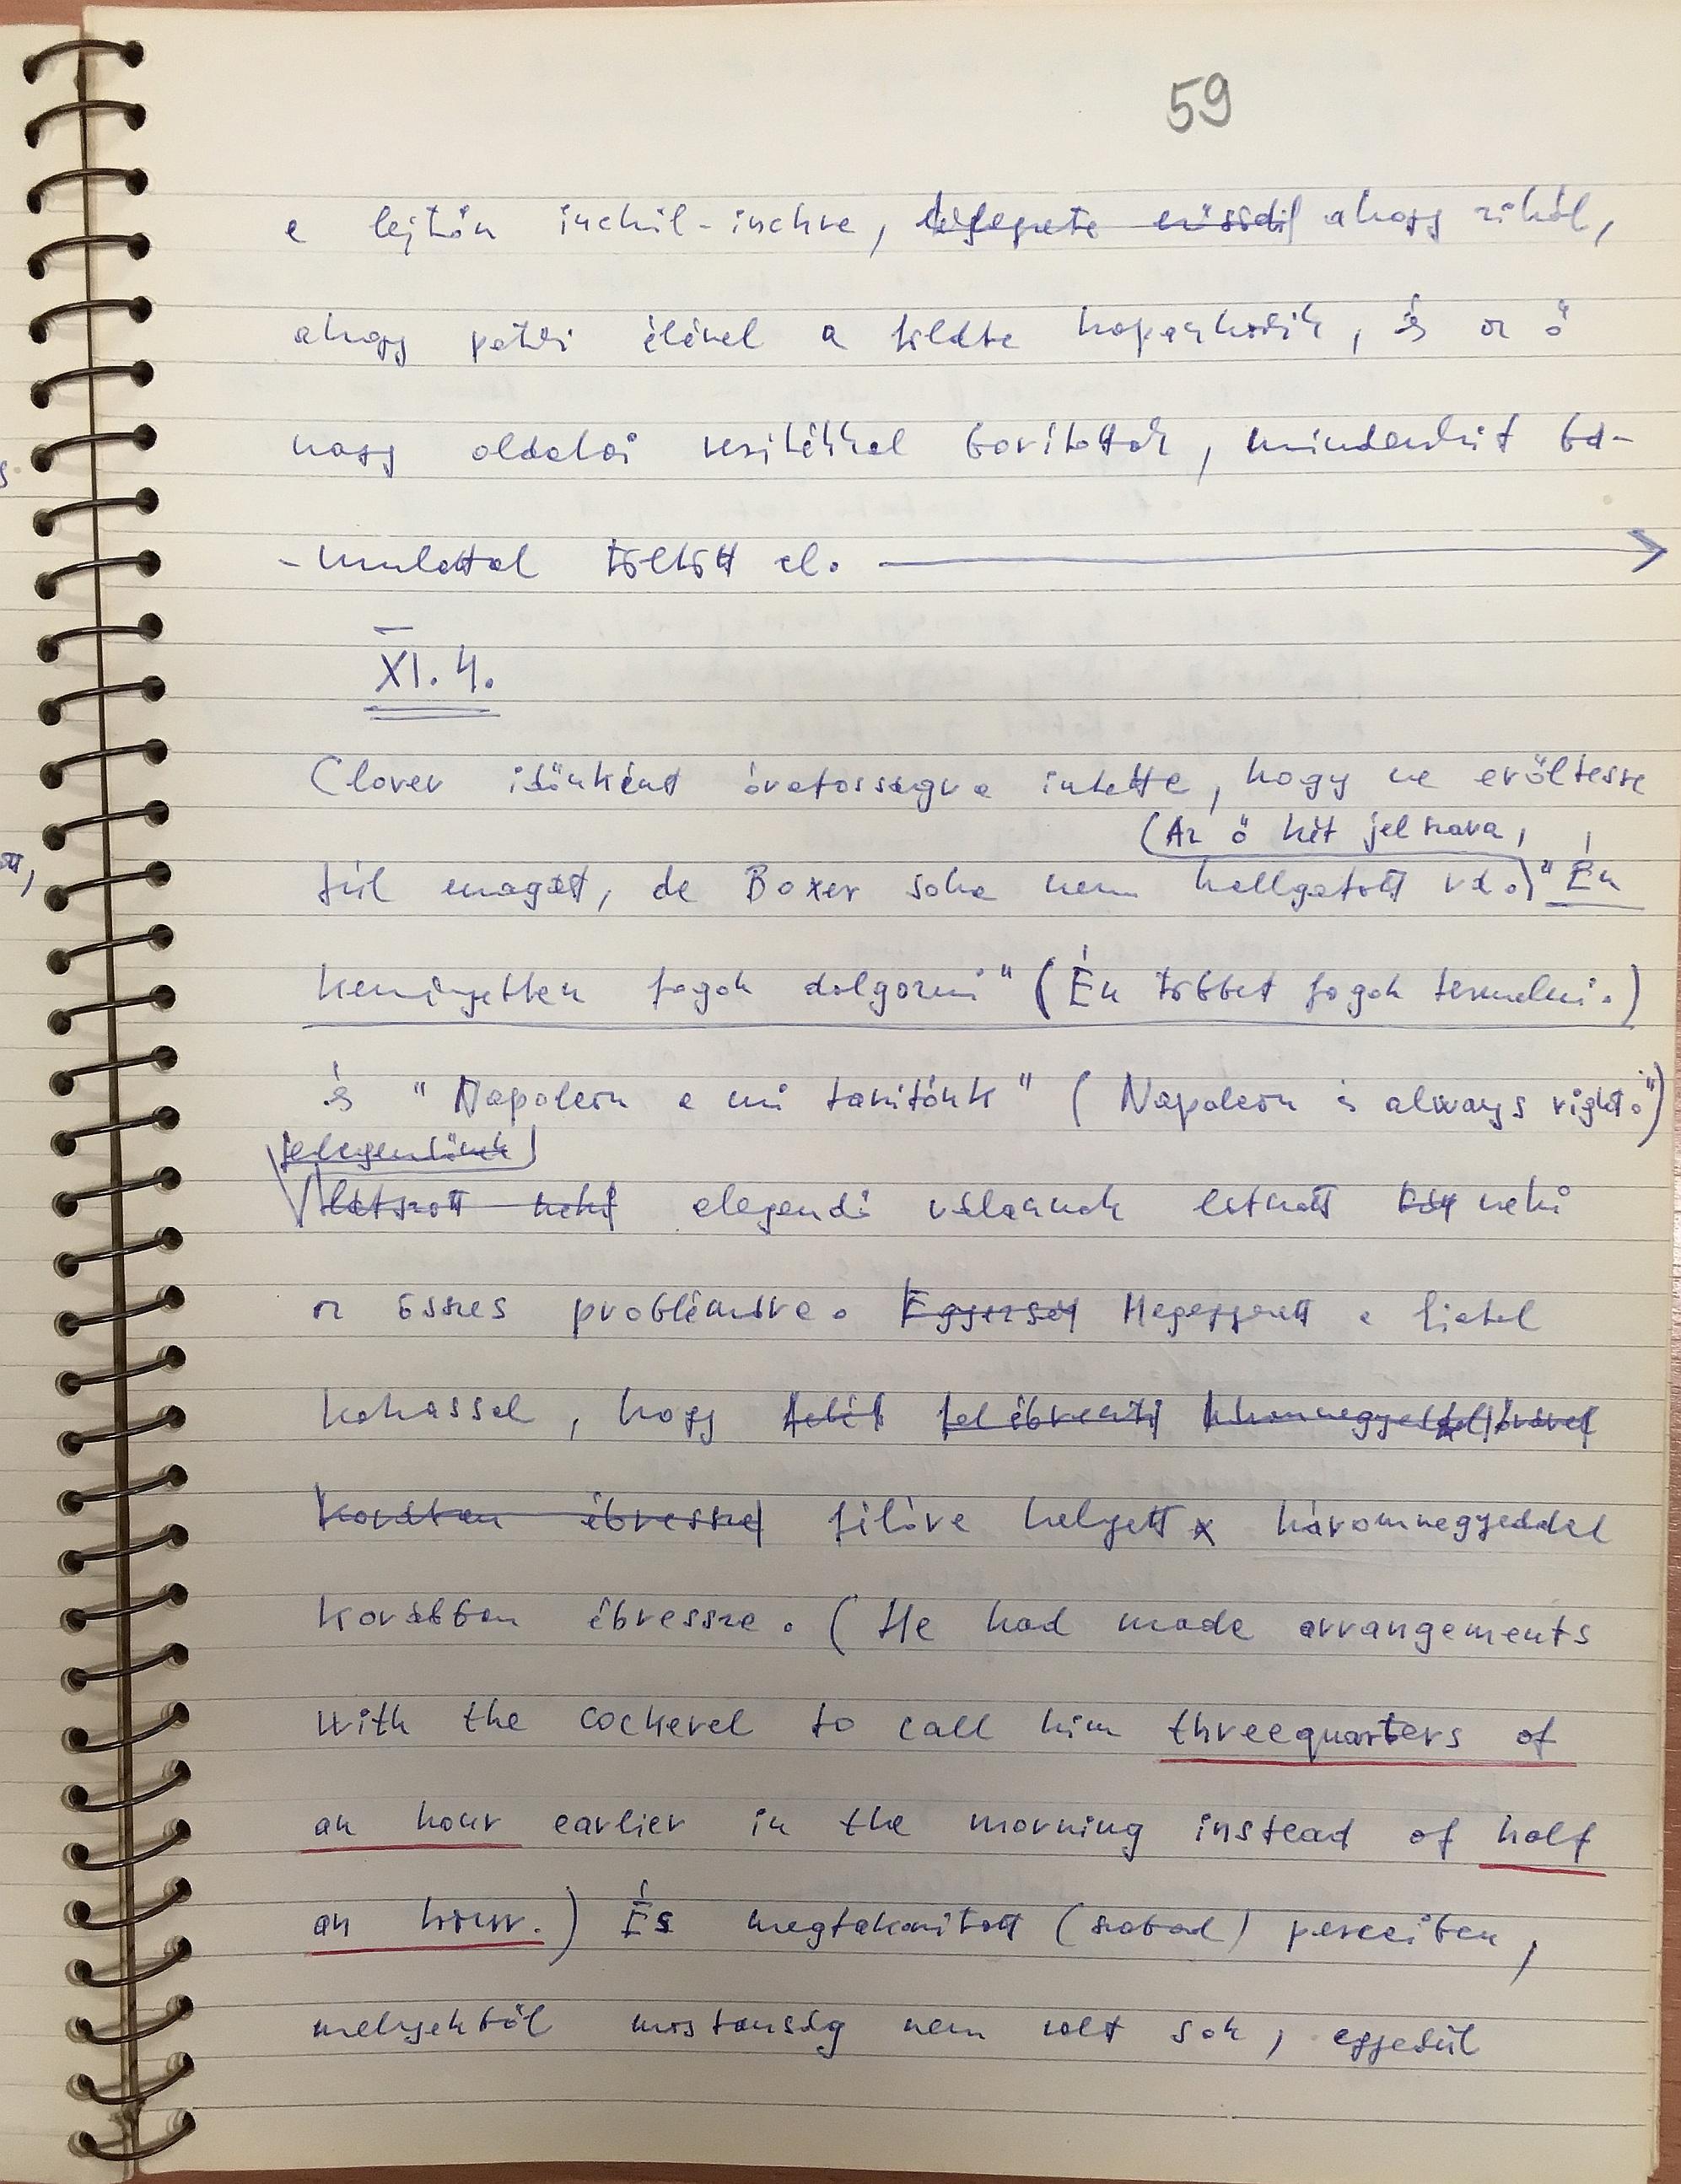 59
a lejtőn inchil-inchre, lélegzete erősödi ahogy zihál,
ahogy patái élével a földbe kapaszkodik, és az ő
nagy oldalai verítékkel borítottak, mindenkit bá-
-mulattal töltött el.
XI. 4.
Clover időnként óvatosságra intette, hogy ne erőltesse
(Az ő két jelszava,
túl magát, de Boxer soha nem hallgatott rá.) "Én
keményebben fogok dolgozni" (Én többet fogok termelni.)
és "Napoleon a mi tanítónk" (Napoleon is always right.")
elegendőnek
látszott neki elegendő válasznak látszott neki
az összes problémára. Egyezség Megegyezett a fiatal
kakassal, hogy felé felébreszti háromnegyed órával
korábban ébressze félóra helyett háromnegyeddel
korábban ébressze. (He had made arrangements
with the cockerel to call him threequarters of
an hour earlier in the morning instead of half
an hour.) És megtakarított (szabad) perceiben,
melyekből mostanság nem volt sok, egyedül